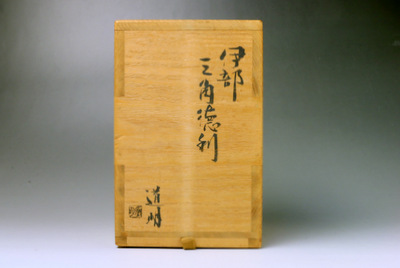 伊部
三角徳利
道明